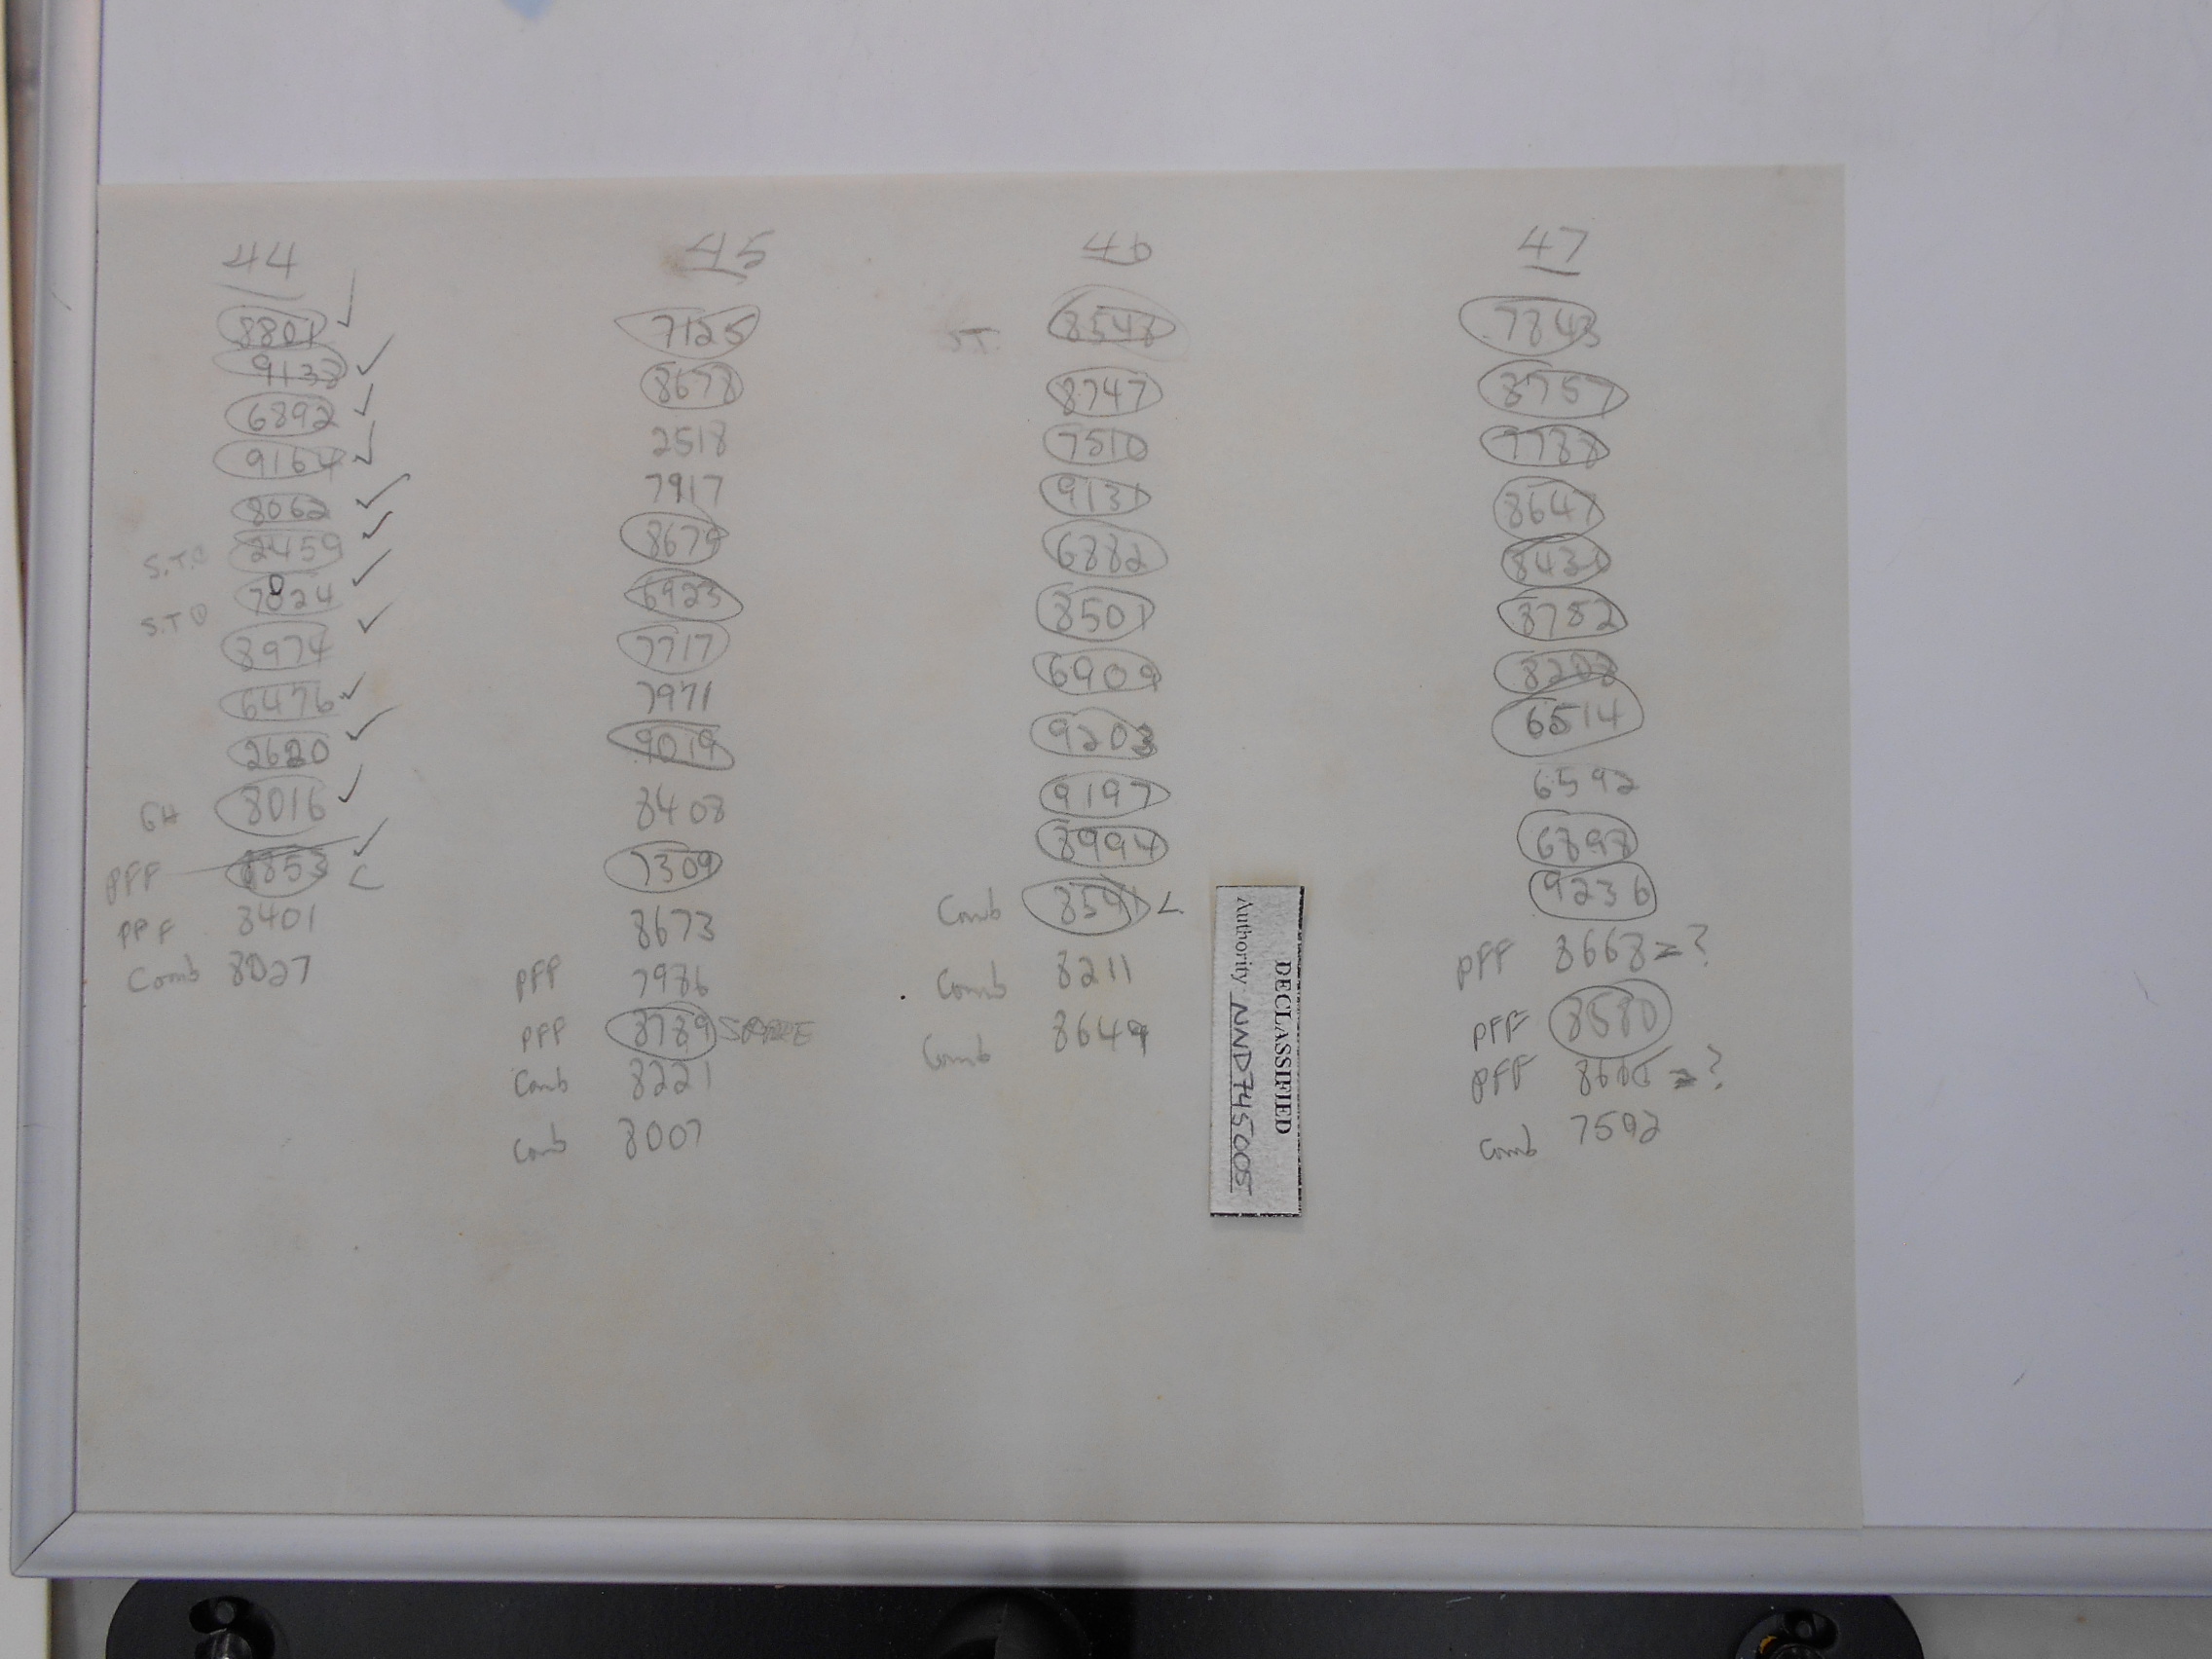 44
8801 ✓
9138 ✓
6892 ✓
9164 ✓
8062 ✓
S.T. 2459 ✓
S.T. 7824 ✓
8974 ✓
6476 ✓
2620 ✓
GH 8016 ✓
PFF 8853 ✓ C
PPF 8401
Comb 8027
45
7125
8678
2518
7917
8679
6923
7717
7971
9019
8408
7309
8673
PFF 7986
PFF 8789 SPARE
Comb 8221
Comb 8007
46
S.T. 8548
8747
7510
9131
6882
8501
6909
9203
9197
8994
Comb 8591 C
Comb 8211
Comb 8649
47
7843
8757
7788
8647
8431
8782
8208
6514
6592
6898
9236
PFF 8668 = ?
PFF 8580
PFF = ?
Comb 7592
DECLASSIFIED
Authority NND745005